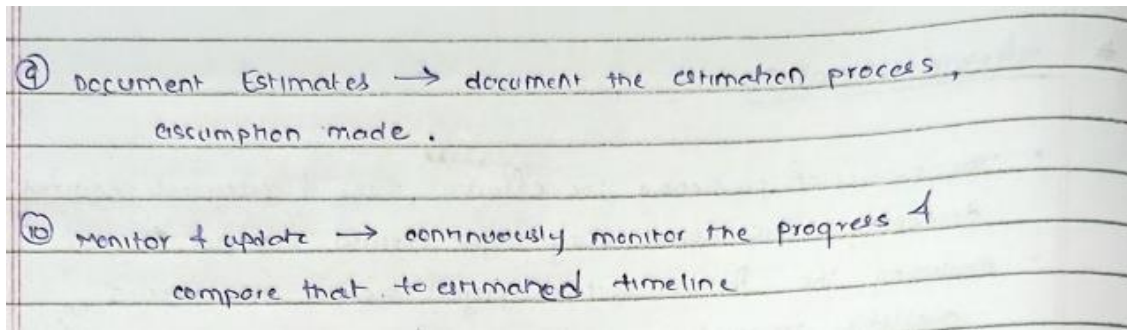 ⑨ Document Estimates → document the estimation process,
assumption made.
⑩ Monitor & update → continuously monitor the progress &
compare that to estimated timeline